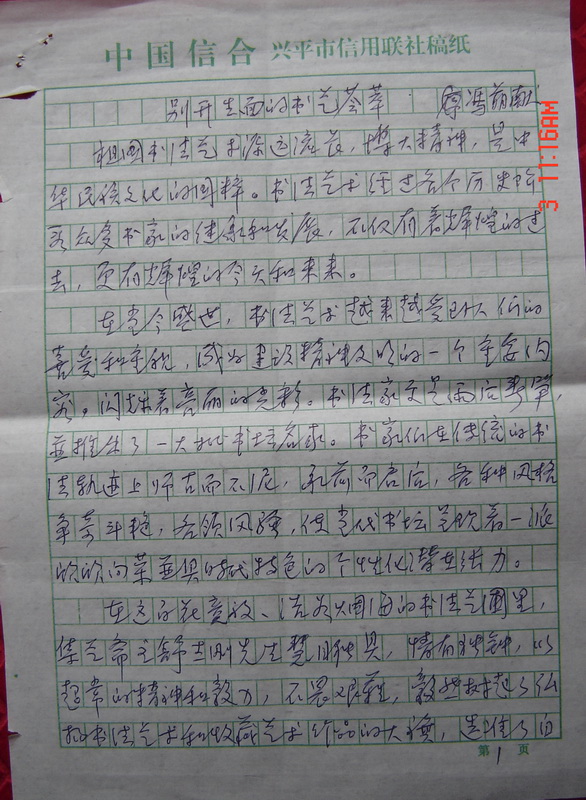 中国信合 兴平市信用联社稿纸
别开生面的书艺荟萃
3 11:16AM
祖国书法艺术源远流长，博大精神，是中
华民族文化的国粹。书法艺术经过各个历史阶
段众多书家的继承和发展，不仅有着辉煌的过
去，更有辉煌的今天和未来。
在当今盛世，书法艺术越来越受到人们的
喜爱和重视，成为建设精神文明的一个重要内
容。闪烁着亮丽的光彩。书法家更是雨后春笋，
并推生了一大批书坛名家。书家们在传统的书
法轨迹上师古而不泥，承前而启后，各种风格
争荣斗艳，各领风骚，使当代书坛呈现着一派
欣欣向荣并具时代特色的个性化潜在活力。
在这百花竞放、浩如烟海的书法艺圃里，
华艺斋主舒志刚先生慧眼独具，情有独钟，以
超常的精神和毅力，不畏艰难，毅然挑起了弘
扬书法艺术和收藏艺术作品的大旗，选准了自
第1页